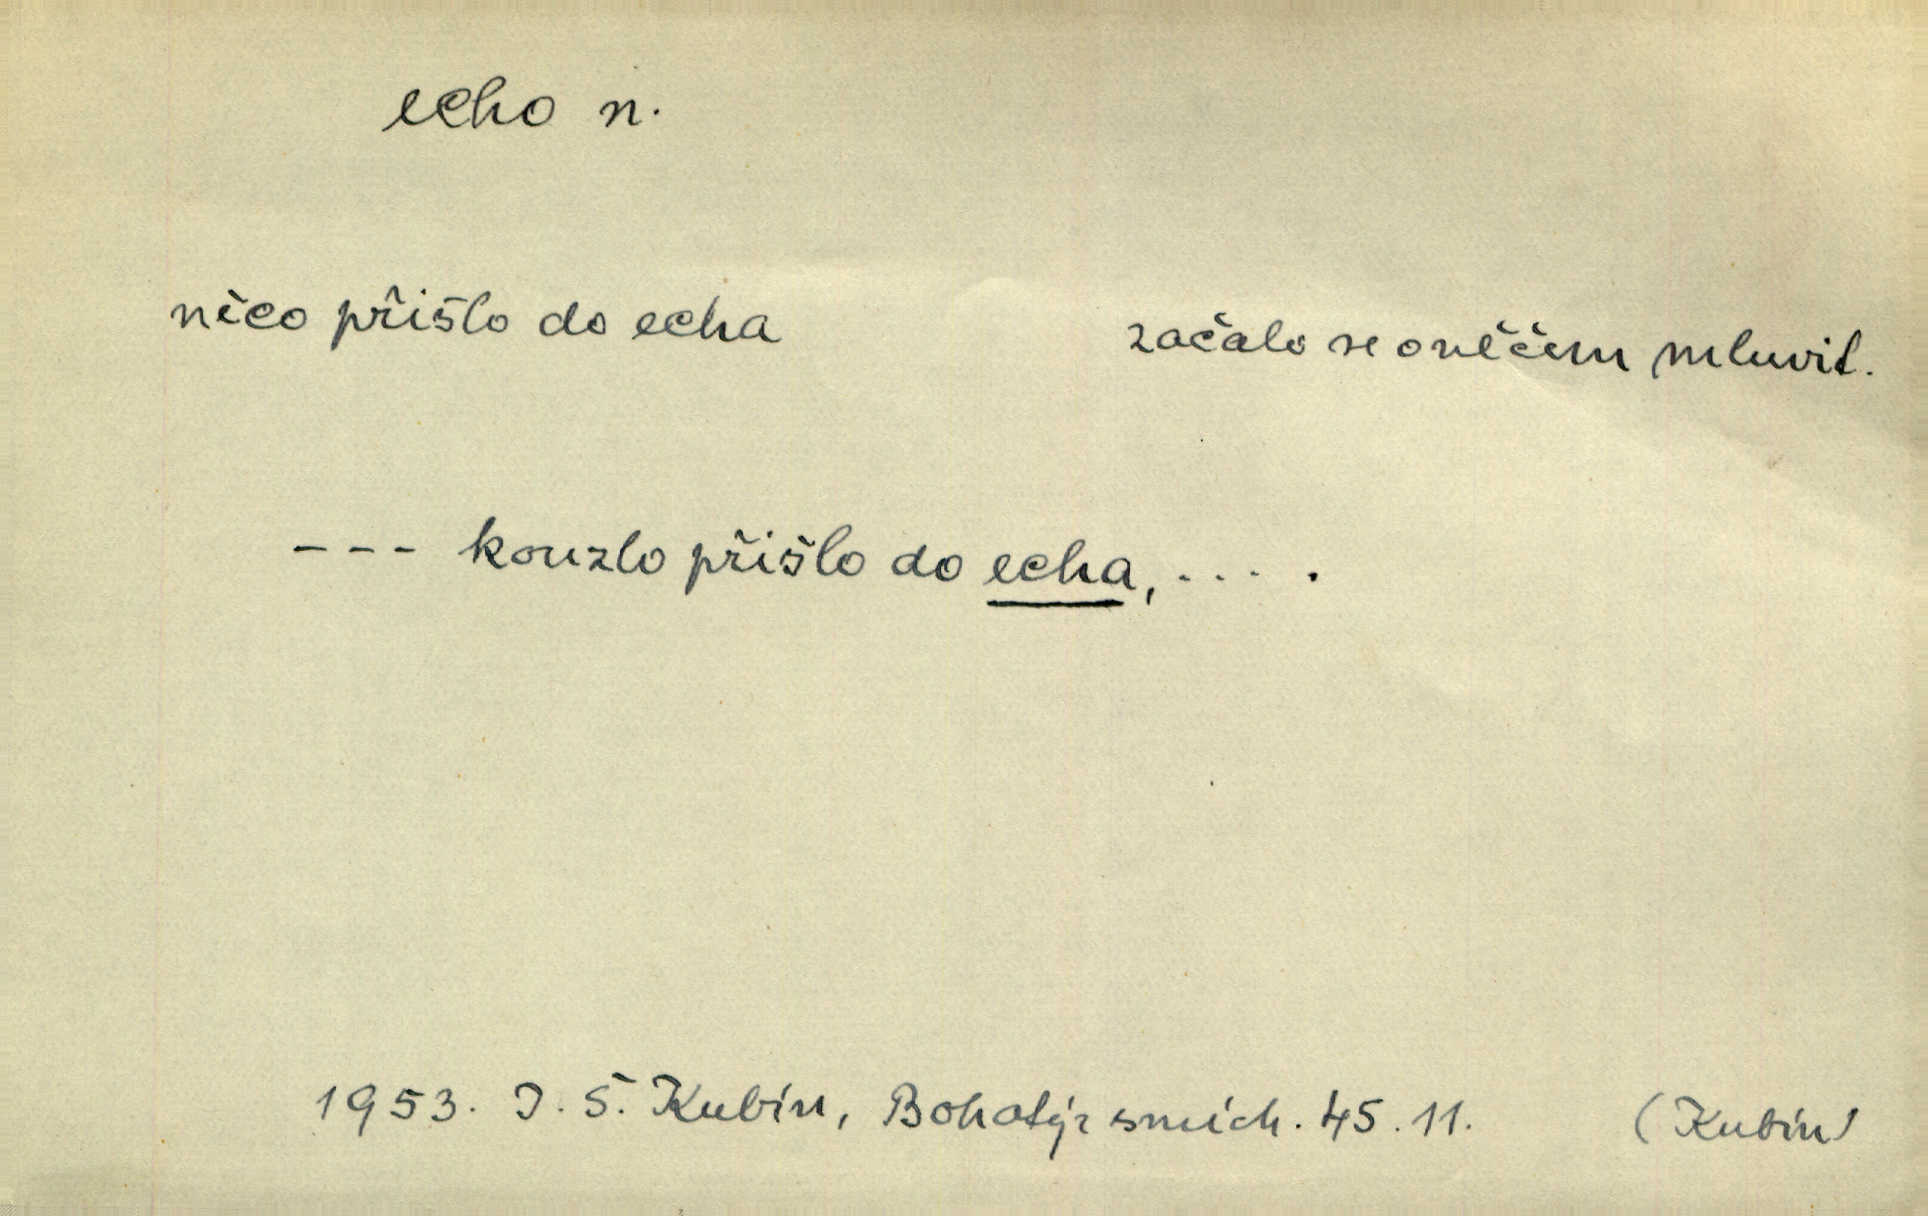 echo n.
něco přišlo do echa začalo se o něčem mluvit.
--- kouzlo přišlo do echa, ....
1953. J. Š. Kubín, Bohatýr smích. 45.11. (Kubín)